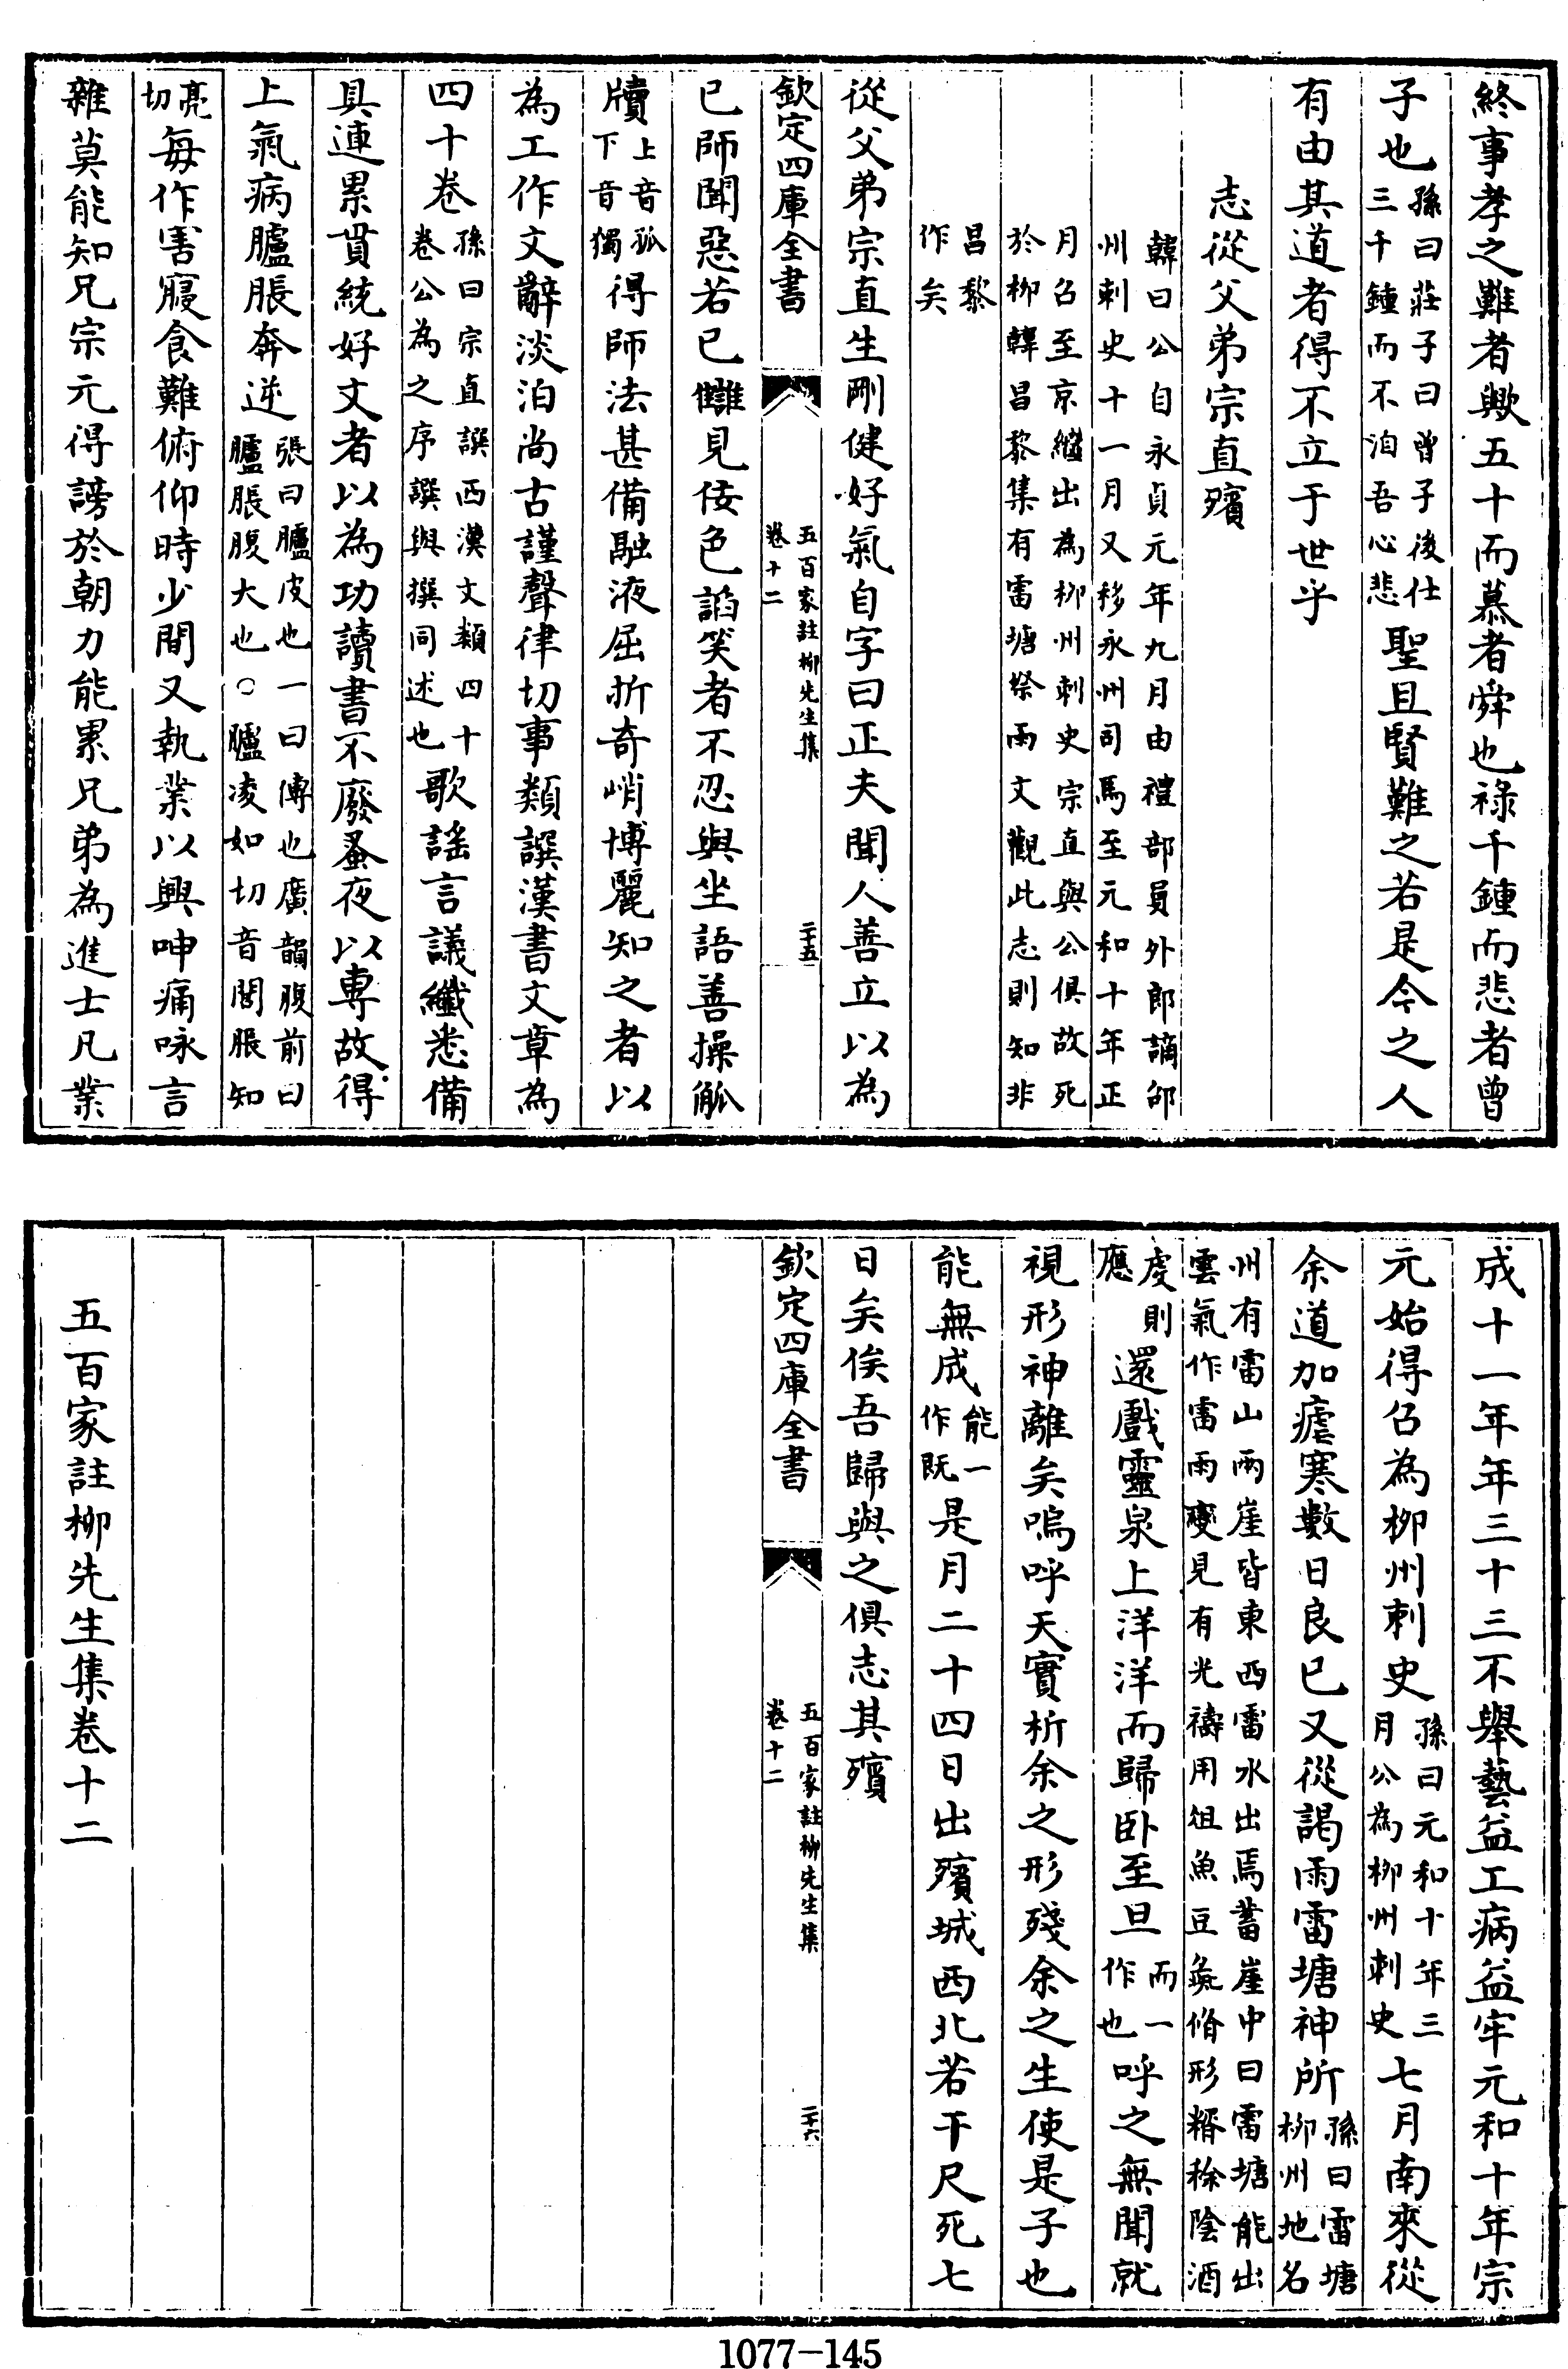 終事孝之難者歟五十而慕者舜也祿千鍾而悲者曾
子也孫曰莊子曰曾子後仕三千鍾而不洎吾心悲聖且賢難之若是今之人
有由其道者得不立于世乎
志從父弟宗直殯
韓曰公自永貞元年九月由禮部員外郎謫邵
州刺史十一月又移永州司馬至元和十年正
月召至京繼出為柳州刺史宗直與公俱故死
於柳韓昌黎集有雷塘祭雨文觀此志則知非
昌黎
作矣
從父弟宗直生剛健好氣自字曰正夫聞人善立以為
欽定四庫全書
五百家註柳先生集
卷十二
二十五
已師聞惡若已讎見佞色諂笑者不忍與坐語善操觚
牘上音孤下音獨得師法甚備融液屈折奇峭博麗知之者以
為工作文辭淡泊尚古謹聲律切事類譔漢書文章為
四十卷孫曰宗直譔西漢文類四十卷公為之序譔與撰同述也歌謡言議纖悉備
具連累貫統好文者以為功讀書不廢蚤夜以專故得
上氣病臚脹奔逆張曰臚皮也一曰傳也廣韻腹前曰臚脹腹大也○臚凌如切音閭脹知
亮切每作害寢食難俯仰時少間又執業以興呻痛咏言
雜莫能知兄宗元得謗於朝力能累兄弟為進士凡業
成十一年年三十三不舉藝益工病益牢元和十年宗
元始得召為柳州刺史孫曰元和十年三月公為柳州刺史七月南來從
余道加瘧寒數日良已又從謁雨雷塘神所孫曰雷塘柳州地名
州有雷山兩崖皆東西雷水出焉蓄崖中曰雷塘能出
雲氣作雷雨變見有光禱用俎魚豆彘脩形糈稌陰酒
虔則應還戲靈泉上洋洋而歸卧至旦而一作也呼之無聞就
視形神離矣嗚呼天實析余之形殘余之生使是子也
能無成能一作既是月二十四日出殯城西北若干尺死七
日矣俟吾歸與之俱志其殯
欽定四庫全書
五百家註柳先生集
卷十二
二十六
五百家註柳先生集卷十二
1077-145